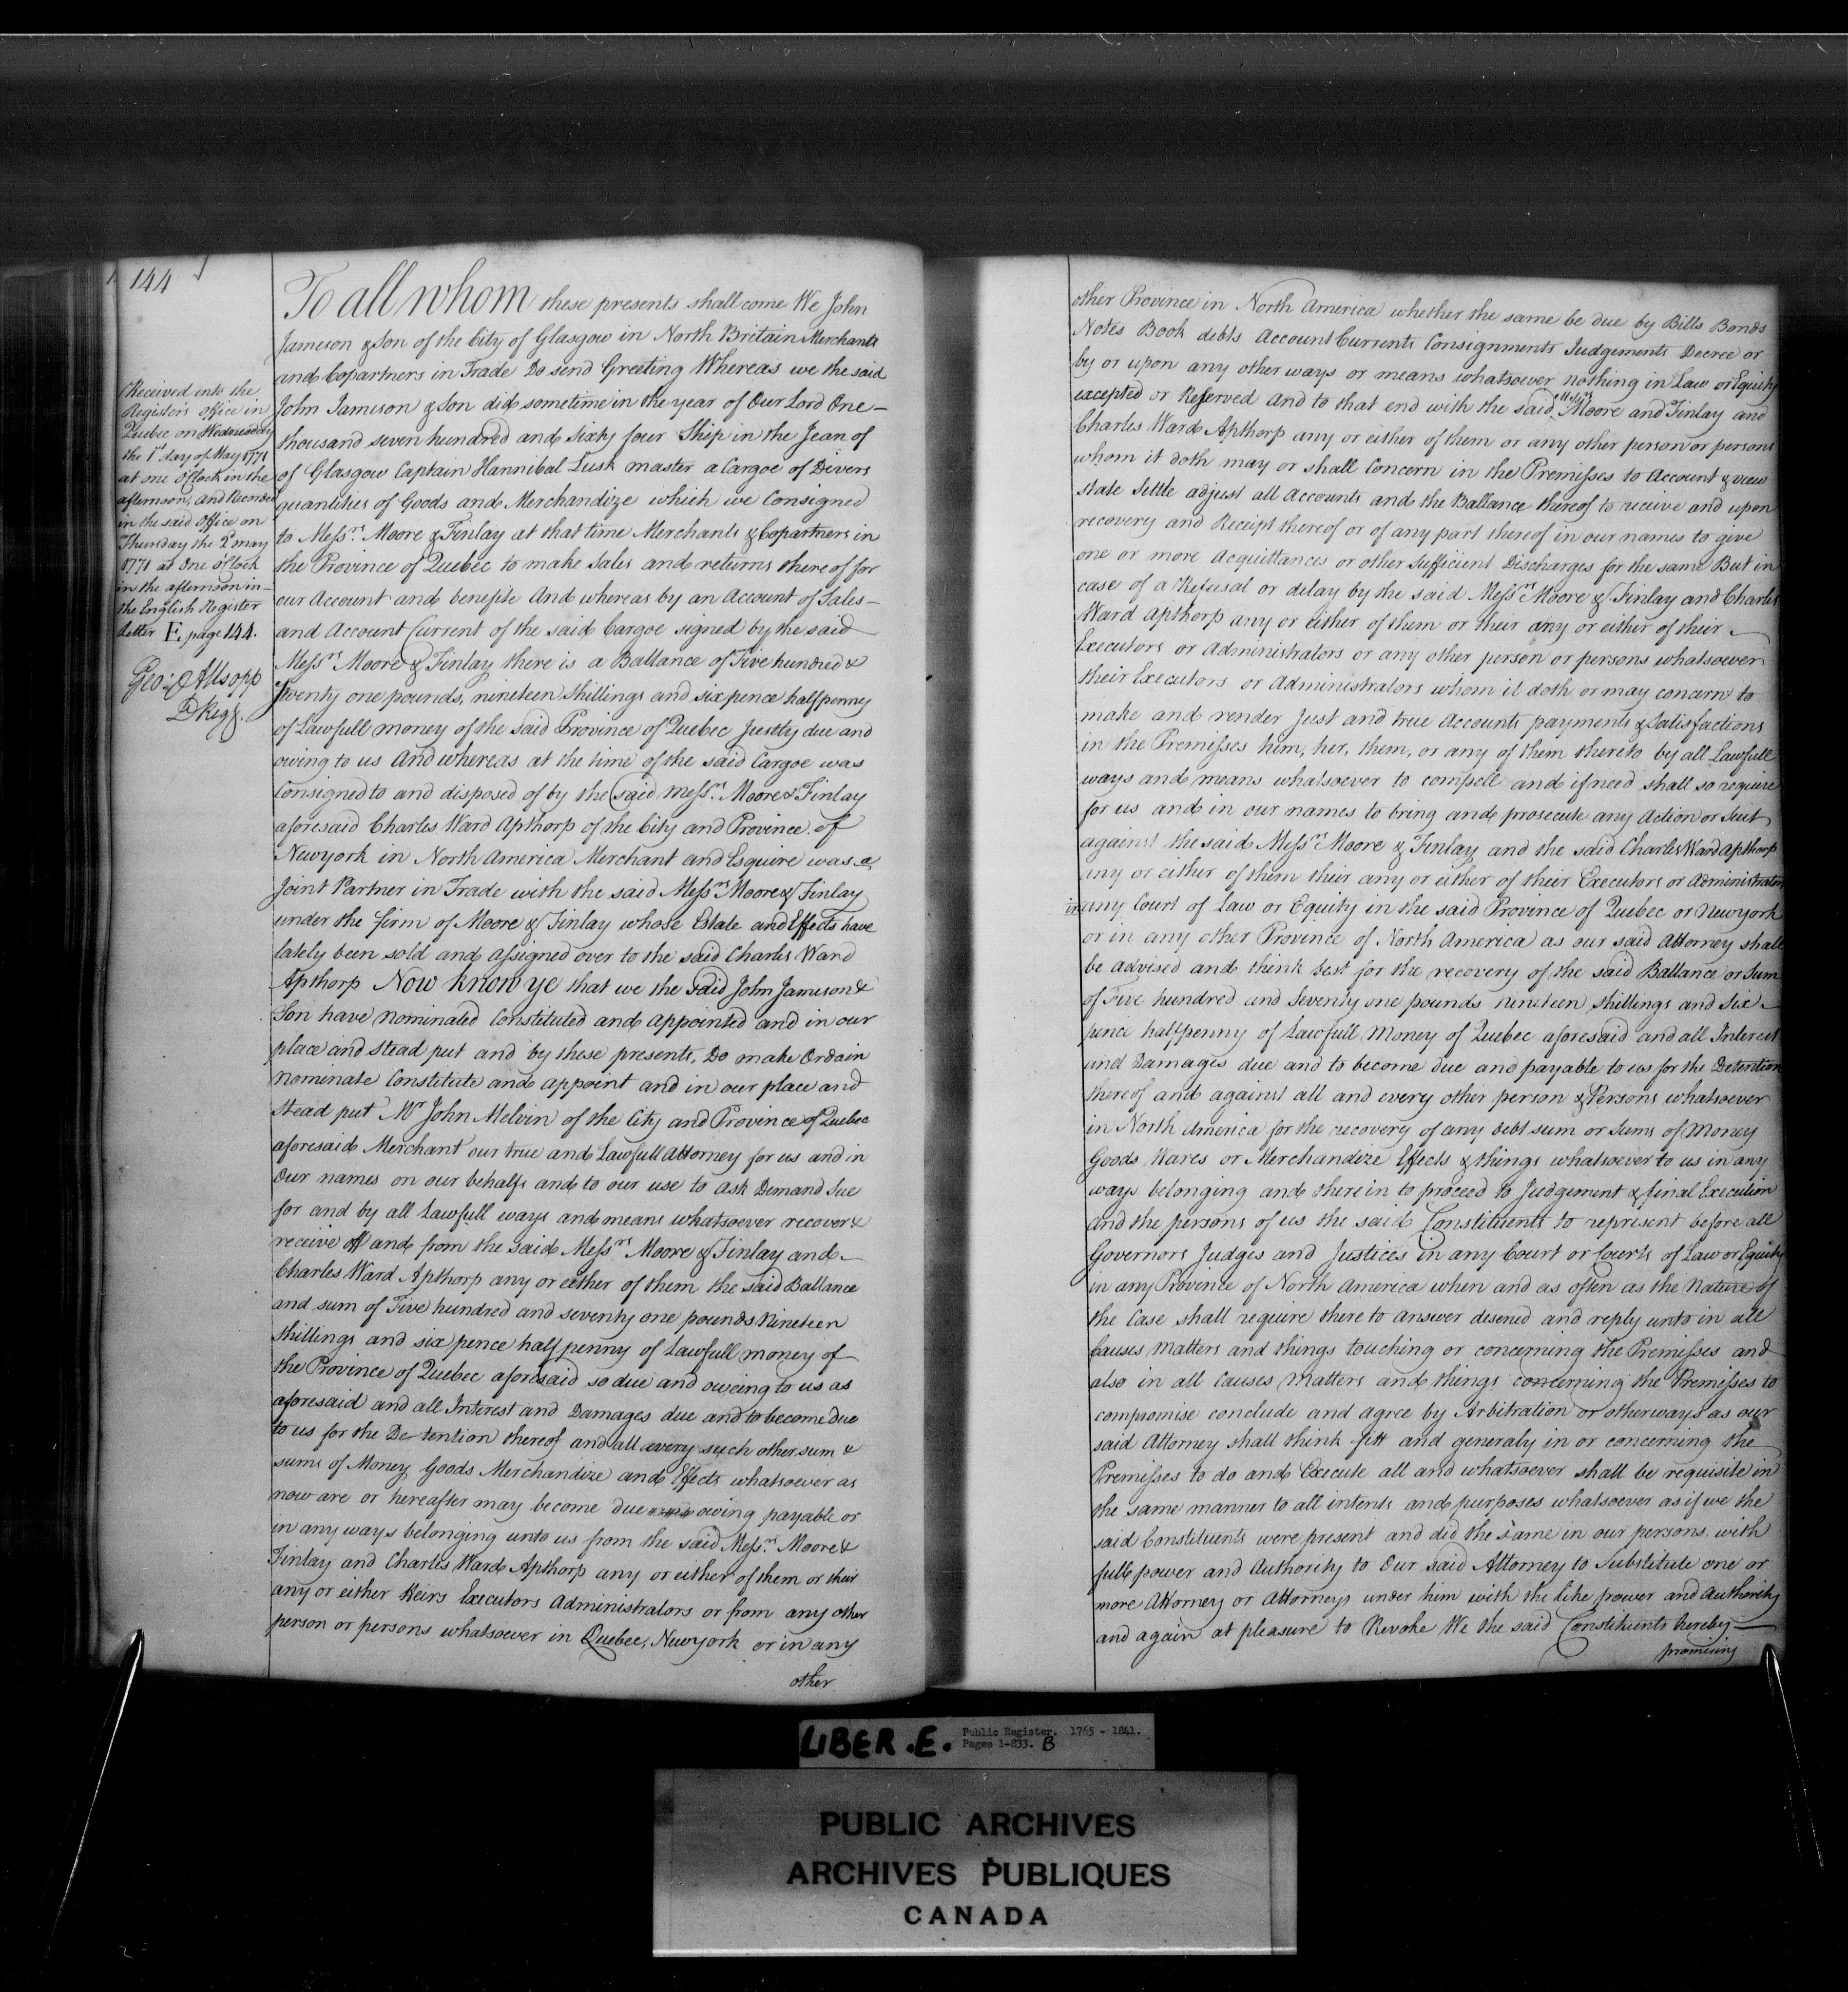 144
To all whom these presents shall come We John
Jameson & Son of the City of Glasgow in North Britain Merchants
and Copartners in Trade Do send Greeting Whereas we the said
John Jameson & Son did sometime in the year of Our Lord One
thousand seven hundred and Sixty four Ship in the Jean of
of Glasgow Captain Hannibal Lusk master a Cargoe of Divers
quantities of Goods and Merchandize which we Consigned
to Messrs. Moore & Finlay at that time Merchants & Copartners in
the Province of Quebec to make Sales and returns thereof for
our Account and benefite And whereas by an Account of Sales
and Account Current of the said Cargoe signed by the said
Messrs Moore & Finlay there is a Ballance of Five hundred &
twenty one pounds, nineteen shillings and six pence halfpenny
of Lawfull money of the said Province of Quebec Justly due and
owing to us And whereas at the time of the said Cargoe was
Consigned to and disposed of by the said Messrs. Moore & Finlay
aforesaid Charles Ward Apthorp of the City and Province of
Newyork in North America Merchant and Esquire was a
Joint Partner in Trade with the said Messrs Moore & Finlay
under the firm of Moore & Finlay whose Estate and Effects have
lately been sold and assigned over to the said Charles Ward
Apthorp Now know ye that we the said John Jameson &
Son have nominated Constituted and appointed and in our
place and stead put and by these presents, Do make Ordain
nominate Constitute and appoint and in our place and
stead put Mr John Melvin of the City and Province of Quebec
aforesaid Merchant our true and Lawfull Attorney for us and in
Our names on our behalfs and to our use to ask Demand Sue
for and by all Lawfull ways and means whatsoever recover &
receive off and from the said Messrs Moore & Finlay and
Charles Ward Apthorp any or either of them the said Ballance
and sum of Five hundred and seventy one pounds Nineteen
shillings and six pence half penny of Lawfull money of
the Province of Quebec aforesaid so due and oweing to us as
aforesaid and all Interest and Damages due and to become due
to us for the De-tention thereof and all every such other sum &
sums of Money Goods Merchandize and Effects whatsoever as
now are or hereafter may become due owing payable or
in any ways belonging unto us from the said Messrs. Moore &
Finlay and Charles Ward Apthorp any or either of them or their
any or either Heirs Executors Administrators or from any other
person or persons whatsoever in Quebec, Newyork or in any
other
Received into the
Registers office in
Quebec on Wednesday
the 1st day of May 1771
at one o'Clock in the
afternoon, and Recorded
in the said Office on
Thursday the 2d may
1771 at One o'Clock
in the afternoon in
the English Register
Letter E, page 144.
Geo: Allsopp
D Regr.
other Province in North America whether the same be due by Bills Bonds
Notes Book debts Account Currents Consignments Judgements Decree or
by or upon any other ways or means whatsoever nothing in Law or Equity
excepted or Reserved And to that end with the said Messrs Moore and Finlay and
Charles Ward Apthorp any or either of them or any other person or persons
whom it doth may or shall Concern in the Premisses to Account & view
state Settle adjust all Accounts and the Ballance thereof to receive and upon
recovery and Receipt thereof or of any part thereof in our names to give
one or more Acquittances or other Sufficient Discharges for the same But in
case of a Refusal or delay by the said Messrs Moore & Finlay and Charles
Ward Apthorp any or either of them or their any or either of their
Executors or Administrators or any other person or persons whatsoever
their Executors or Administrators whom it doth or may concern to
make and render Just and true Accounts payments & Satisfactions
in the Premisses him, her, them, or any of them thereto by all Lawfull
ways and means whatsoever to compell and if need shall so require
for us and in our names to bring and prosecute any Action or Suit
against the said Messrs Moore & Finlay and the said Charles Ward Apthorp
any or either of them their any or either of their Executors or Administrators
in any Court of Law or Equity in the said Province of Quebec or Newyork
or in any other Province of North America as our said Attorney shall
be advised and think best for the recovery of the said Ballance or Sum
of Five hundred and Seventy one pounds nineteen shillings and Six
pence halfpenny of Lawfull Money of Quebec aforesaid and all Interest
and Damages due and to become due and payable to us for the Detention
thereof and against all and every other person & Persons whatsoever
in North America for the recovery of any debt sum or Sums of Money
Goods Wares or Merchandize Effects & things whatsoever to us in any
ways belonging and therein to proceed to Judgement & final Execution
and the persons of us the said Constituents to represent before all
Governors Judges and Justices in any Court or Courts of Law or Equity
in any Province of North America when and as often as the Nature of
the Case shall require there to Answer desened and reply unto in all
Causes Matters and things touching or concerning the Premisses and
also in all Causes Matters and things concerning the Premisses to
compromise conclude and agree by Arbitration or otherways as our
said Attorney shall think fitt and generaly in or concerning the
Premisses to do and Execute all and whatsoever shall be requisite in
the same manner to all intents and purposes whatsoever as if we the
said Constituents were present and did the same in our persons with
full power and Authority to Our said Attorney to Substitute one or
more Attorney or Attorneys under him with the like power and Authority
and again at pleasure to Revoke We the said Constituents hereby
promising
LIBER.E.
Public Register. 1765 - 1841.
Pages 1-833. B
PUBLIC ARCHIVES
ARCHIVES PUBLIQUES
CANADA